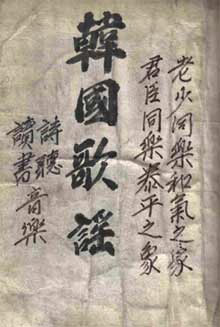 老少同樂和氣之家
君臣同樂泰平之象
韓國歌謠
詩聽音樂
讀書